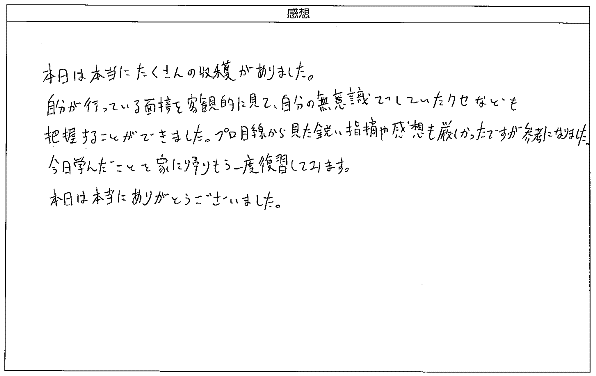 感想
本日は本当にたくさんの収穫がありました。
自分が行っている面接を客観的に見て、自分の無意識でしていたクセなども
把握することができました。プロ目線から見た鋭い指摘や感想も厳しかったですが参考になりました。
今日学んだことを家に帰りもう一度復習してみます。
本日は本当にありがとうございました。